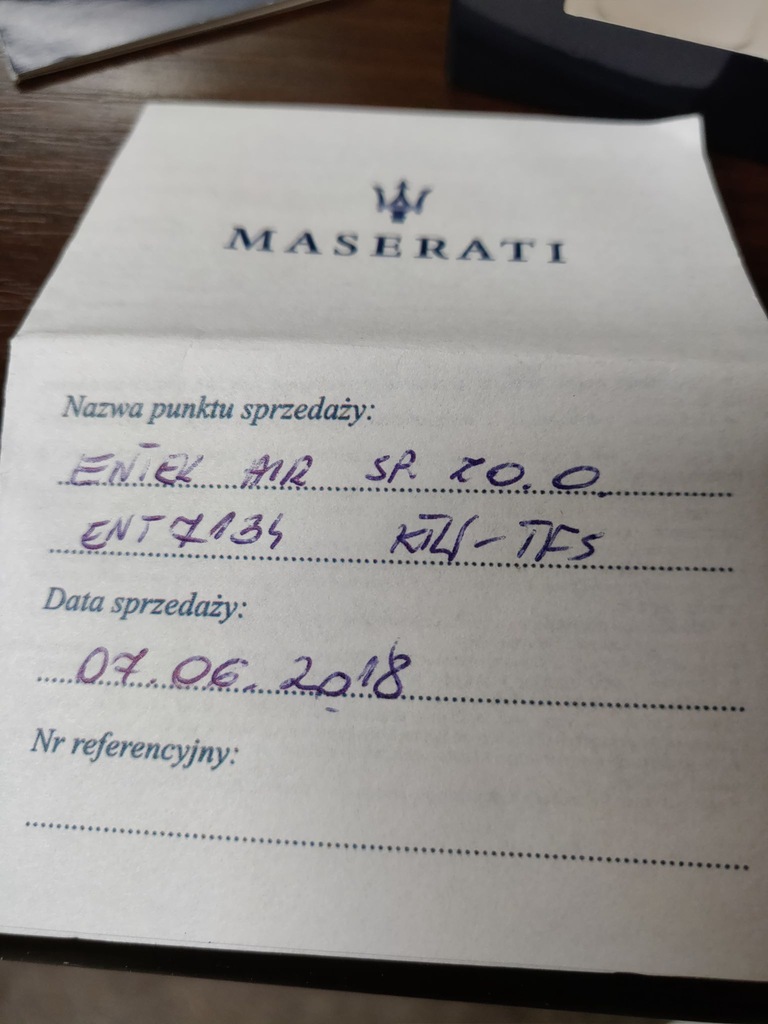 MASERATI
Nazwa punktu sprzedaży:
ENTER AIR SP. ZO.O.
ENT 7134 KTW-TFS
Data sprzedaży:
07.06.2018
Nr referencyjny: